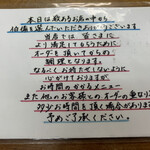 本日は数あるお店の中から
伯備を選んでいただきありがとうございます
当店では皆さまに
より満足してもらうために
オーダーを頂いてからの
調理となります。
なるべくお待たせしないように
心がけておりますが
お時間のかかるメニュー
また他のお客様とのオーダーの重なりで
多少お時間を頂く場合があります
予めご了承ください。